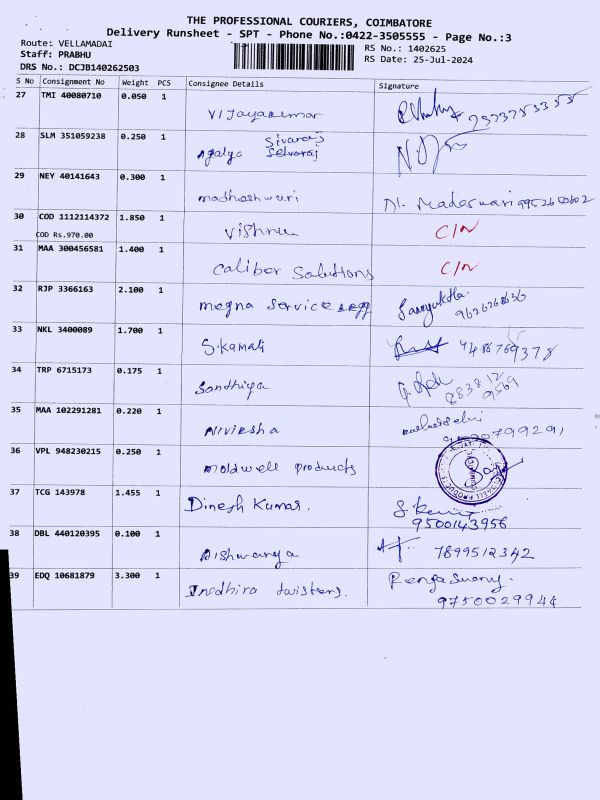 THE PROFESSIONAL COURIERS, COIMBATORE
Delivery Runsheet - SPT - Phone No.:0422-3505555 - Page No.:3
Route: VELLAMADAI
RS No.: 1402625
Staff: PRABHU
RS Date: 25-Jul-2024
DRS No.: DCJB140262503
S No Consignment No Weight PCS Consignee Details Signature
27 TMI 40080710 0.050 1
Vijayakumar
28 SLM 351059238 0.250 1
Sivaraj
Agalya Selvaraj
29 NEY 40141643 0.300 1
madheshwari
9952650602
30 COD 1112114372 1.850 1
COD Rs.970.00
Vishnu C/N
31 MAA 300456581 1.400 1
Caliber Solutions C/N
32 RJP 3366163 2.100 1
megna service Samyuktha
9626268636
33 NKL 3400089 1.700 1
S.Kamali
34 TRP 6715173 0.175 1
Sandhiya
35 MAA 102291281 0.220 1
Niviesha
36 VPL 948230215 0.250 1
moldwell products
37 TCG 143978 1.455 1
Dinesh Kumar.
9500143956
38 DBL 440120395 0.100 1
Aishwarya 7899512342
39 EDQ 10681879 3.300 1
Indhira twisters. Rengaswamy.
9750029944